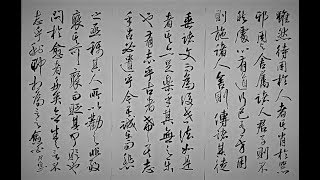 雖然待用於人者其肖於器
邪用與舍屬諸人君子則不
然處心有道行己有方用
則施諸人舍則傳諸其徒
垂諸文而為後世法如是
者其亦足樂乎其無足樂
也有志乎古者希矣志
乎古必遺乎今吾誠樂而悲
之亟稱其人所以勸之非敢
褒其可褒而貶其可貶也
問於愈者多矣念生之言不
志乎利聊相為言之愈白